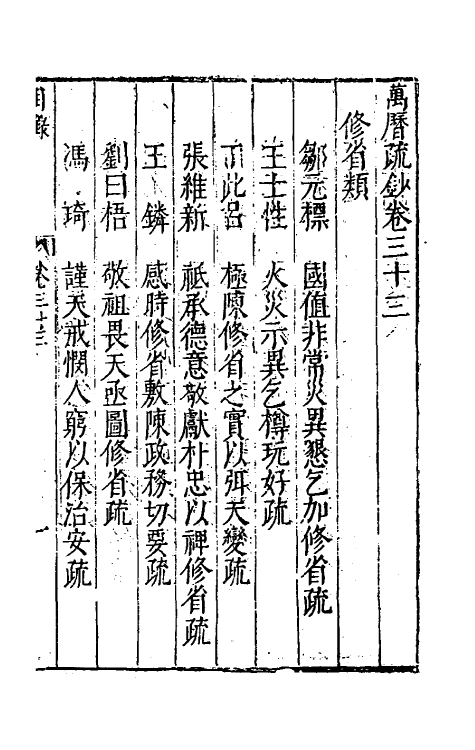 萬曆疏鈔卷三十三
修省類
鄒元標 國值非常災異懇乞加修省疏
王士性 火災示異乞樽玩好疏
丁此呂 極陳修省之實以弭天變疏
張維新 祇承德意敬獻朴忠以裨修省疏
王麟 感時修省敷陳政務切要疏
劉曰梧 敬祖畏天亟圖修省疏
馮琦 謹天戒憫人窮以保治安疏
目錄 卷三十三 一